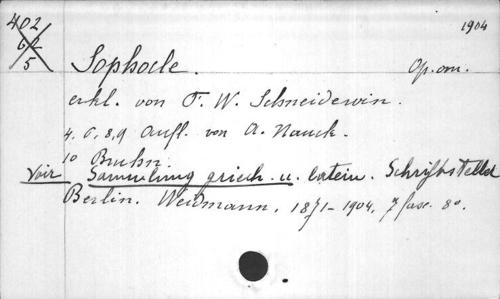 402
62
5
1904
Sophocle. Op. om.
erkl. von F. W. Schneidewin.
4. 6, 8, 9 Aufl. von A. Nauck.
10 Bruhn.
Voir Sammlung griech. u. latein. Schriftsteller
Berlin. Weidmann. 1871–1904. 7 fasc. 8o.